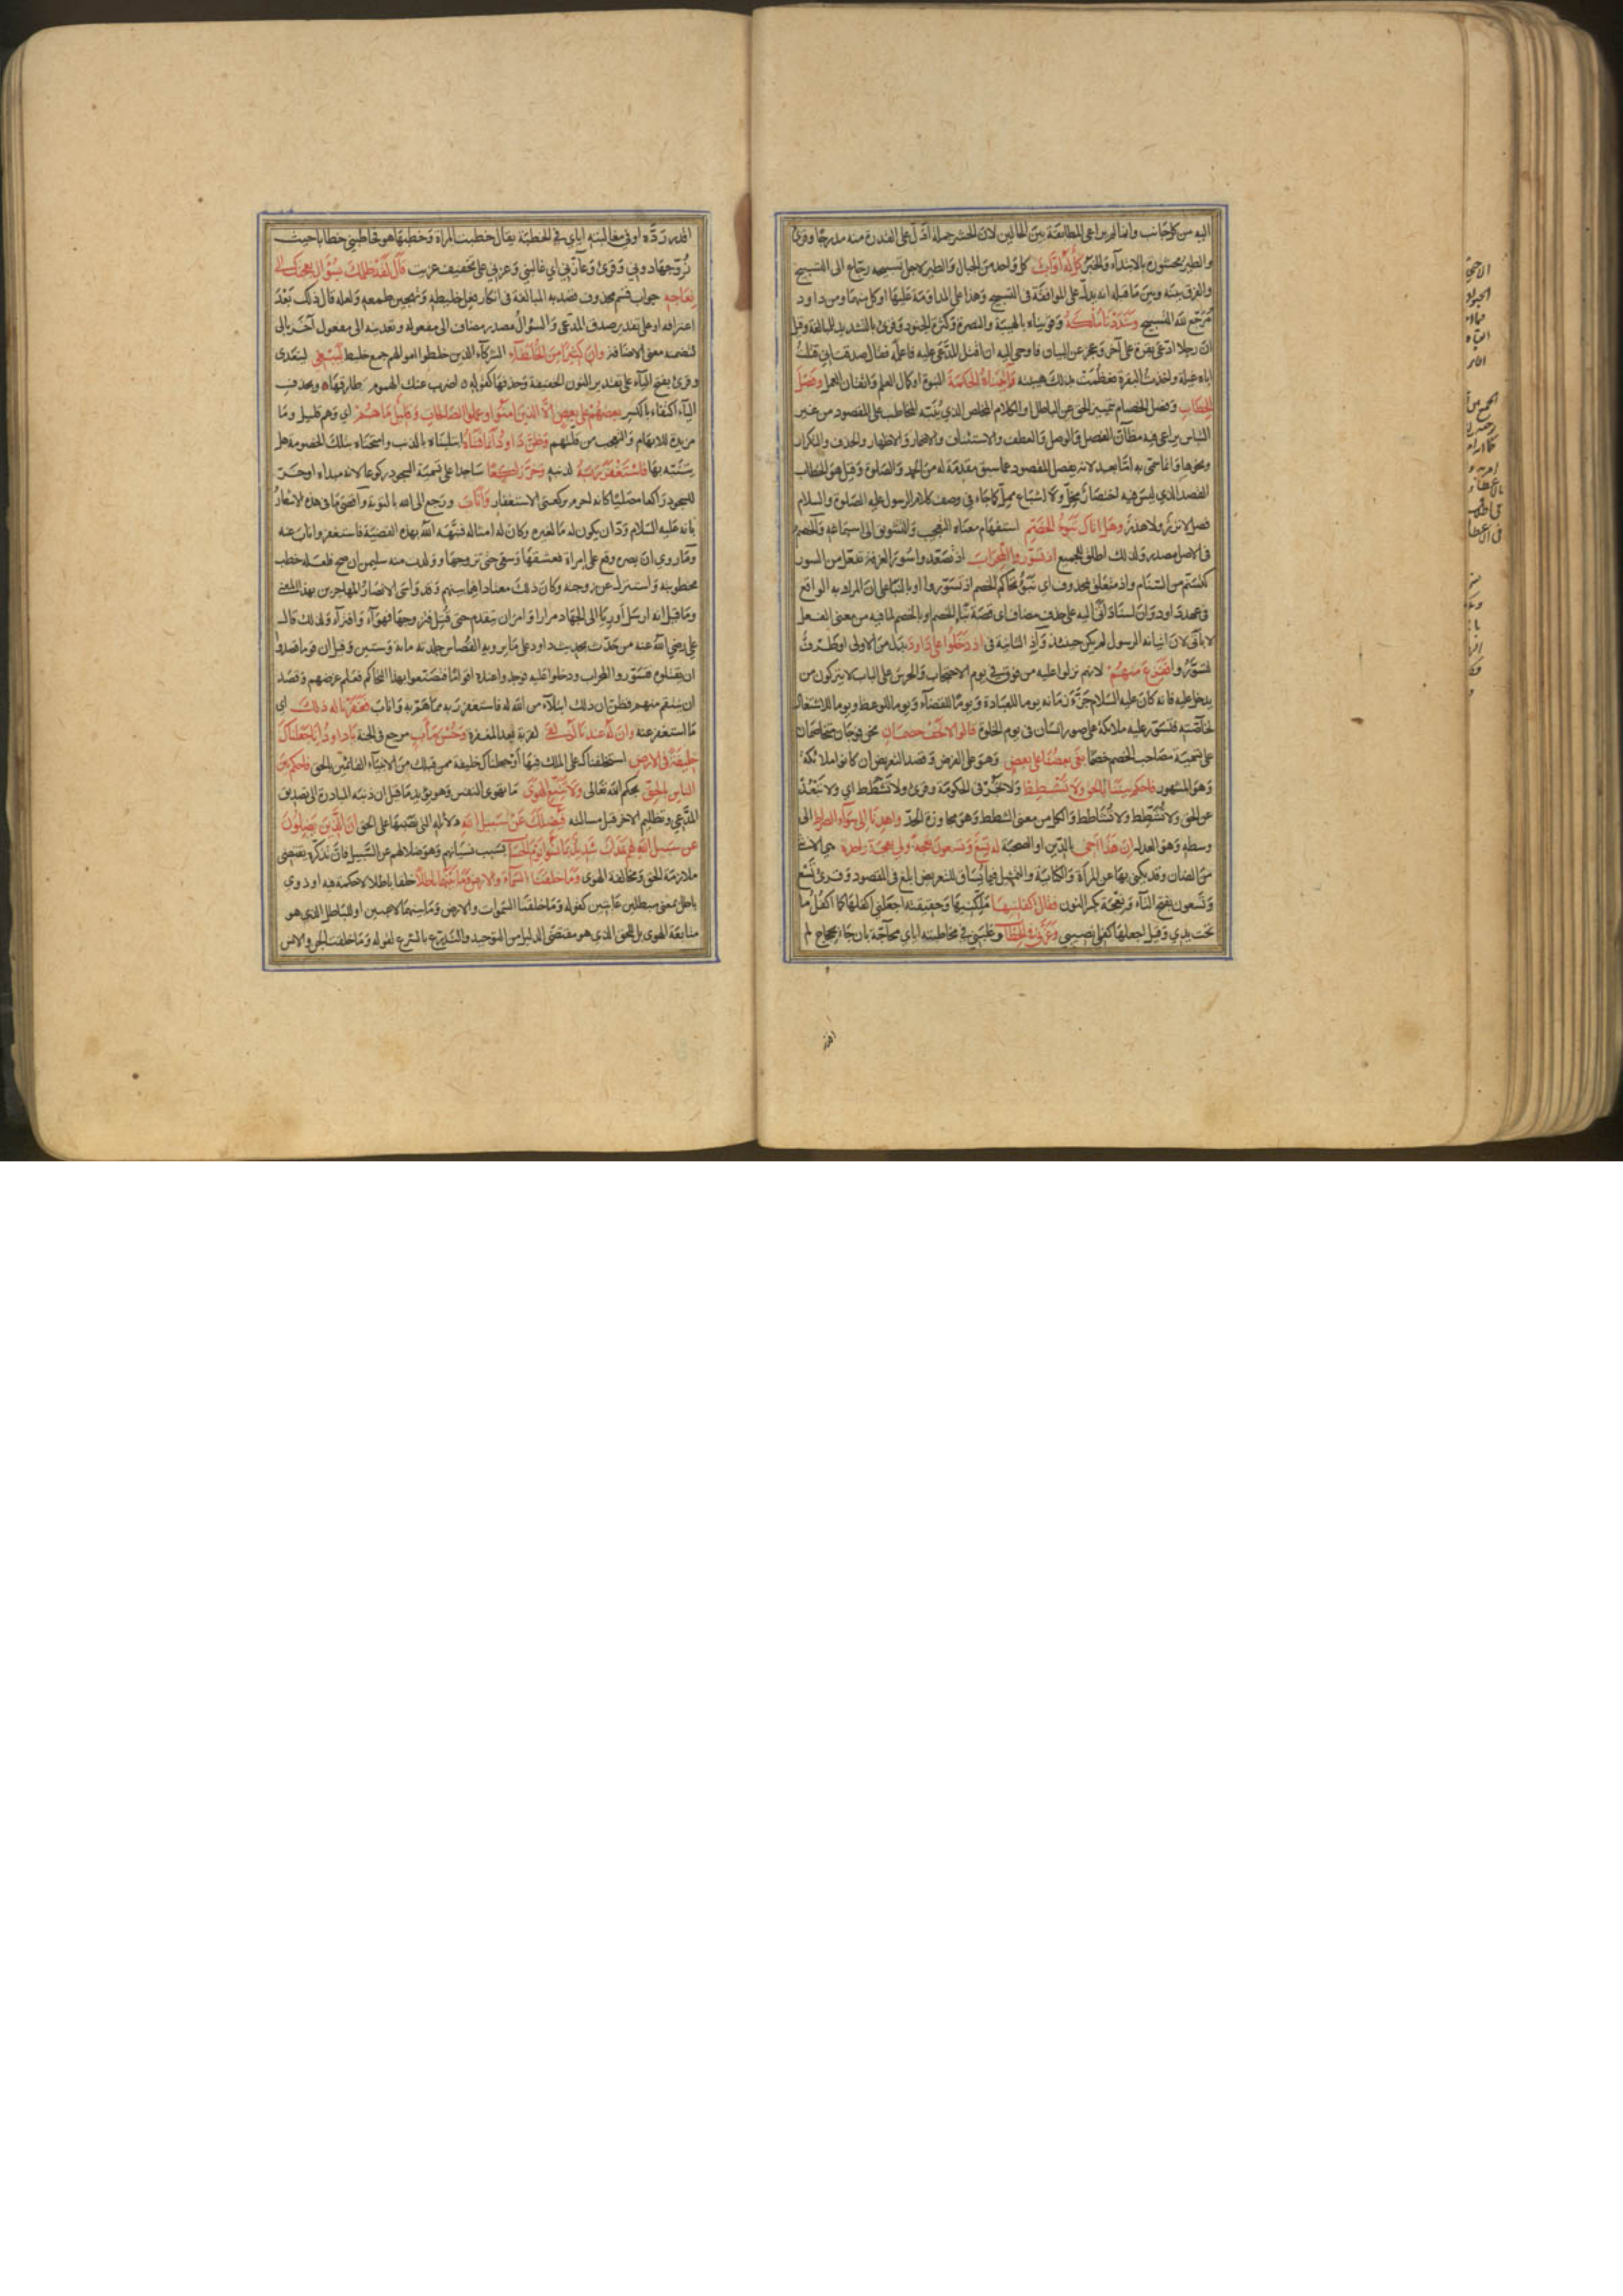 اليه من كل جانب وانما لم يراعى المطابقة بين الحالين لان الحشر جملة ادل على القدرة منه مدرجا وقرئ
والطير محشورة بالابتداء والخبر كل له اواب كل واحد من الجبال والطير لاجل تسبيحه رجاع الى التسبيح
والفرق بينه وبين ما قبله انه يدل على الموافقة في التسبيح وهذا على المداومة عليها او كل منهما ومن داود
مرجع لله التسبيح وشددنا ملكه وقويناه بالهيبة والنصرة وكثرة الجنود وقرئ بالتشديد للمبالغة وقيل
ان رجلا ادعى بقرة على آخر وعجز عن البيان فاوحى اليه ان اقتل المدعى عليه فاعلمه فقال صدقت اني قتلت
اباه غيلة واخذت البقرة فعظمت بذلك هيبته وآتيناه الحكمة النبوة او كمال العلم واتقان العمل وفصل
الخطاب وفصل الخصام بتمييز الحق عن الباطل او الكلام المخلص الذي ينبه المخاطب على المقصود من غير
التباس يراعى فيه مظان الفصل والوصل والعطف والاستئناف والاضمار والاظهار والحذف والتكرار
ونحوها وانما سمى به اما بعد لانه يفصل المقصود عما سبق مقدمة له من الحمد والصلوة وقيل هو الخطاب
القصد الذي ليس فيه اختصار مخل ولا اشباع ممل كما جاء في وصف كلام الرسول عليه الصلوة والسلام
فصل لا نزر ولا هذر وهل اتاك نبؤا الخصم استفهام معناه التعجيب والتشويق الى استماعه والخصم
في الاصل مصدر ولذلك اطلق للجميع اذ تسوروا المحراب اذ تصعدوا سور الغرفة تفعل من السور
كتسنم من السنام واذ متعلق بمحذوف اي نبؤ تحاكم الخصم اذ تسوروا او بالنبا على ان المراد به الواقع
في عهد داود وان اسناد اتى اليه على حذف مضاف اى قصة نبا الخصم او بالخصم لما فيه من معنى الفعل
لا باتى لان اتيانه الرسول لم يكن حينئذ واذ الثانية في اذ دخلوا على داود بدل من الاولى او ظرف
لتسوروا ففزع منهم لانهم نزلوا عليه من فوق في يوم الاحتجاب والحرس على الباب لا يتركون من
يدخل عليه فانه كان عليه السلام جزء زمانه يوما للعبادة ويوما للقضاء ويوما للوعظ ويوما للاشتغال
بخاصته فتسور عليه ملائكة على صور انسان في يوم الخلوة قالوا لا تخف خصمان نحن فوجان متخاصمان
على تسمية مصاحب الخصم خصما بغى بعضنا على بعض وهو على الفرض وقصد التعريض ان كانوا ملائكة
وهو المشهور فاحكم بيننا بالحق ولا تشطط ولا تجر في الحكومة وقرئ ولا تشطط اي ولا تبعد
عن الحق ولا تشطط ولا تشاطط والكل من معنى الشطط وهو مجاوزة الحد واهدنا الى سواء الصراط الى
وسطه وهو العدل ان هذا اخي بالدين او الصحبة له تسع وتسعون نعجة ولي نعجة واحدة هي الانثى
من الضان وقد يكنى بها عن المرأة والكناية والتمثيل فيما يساق للتعريض ابلغ في المقصود وقرئ تسع
وتسعون بفتح التاء ونعجة بكسر النون فقال اكفلنيها ملكنيها وحقيقته اجعلني اكفلها كما اكفل ما
تحت يدي وقيل اجعلها كفلي نصيبي وعزني في الخطاب وغلبني في مخاطبته اياي محاجة بان جاء بحجاج لم
اقدر رده او في مغالبته اياي في الخطبة يقال خطبت المراة وخطبها هو فخاطبني خطابا حيث
زوجها دوني وقرئ وعازني اي غالبني وعزني على تخفيف غريب قال لقد ظلمك بسؤال نعجتك الى
نعاجه جواب قسم محذوف قصد به المبالغة في انكار فعل خليطه وتهجين طمعه ولعله قال ذلك بعد
اعترافه او على تقدير صدق المدعى والسؤال مصدر مضاف الى مفعوله وتعديته الى مفعول آخر بالى
لتضمنه معنى الاضافة وان كثيرا من الخلطاء الشركاء الذين خلطوا اموالهم جمع خليط ليبغي ليتعدى
وقرئ بفتح الياء على تقدير النون الخفيفة وحذفها كقوله ٥ اضرب عنك الهموم طارقها ٥ وبحذف
الياء اكتفاء بالكسر بعضهم على بعض الا الذين امنوا وعملوا الصالحات وقليل ما هم اى وهم قليل وما
مزيدة للابهام والتعجب من قلتهم وظن داود انما فتناه ابتليناه بالذنب وامتحناه بتلك الخصومة هل
يتنبه بها فاستغفر ربه لذنبه وخر راكعا ساجدا على تسمية السجود ركوعا لانه مبداه او خر
للسجود راكعا مصليا كانه احرم بركعتى الاستغفار واناب ورجع الى الله بالتوبة واقصى ما في هذه الاشعار
بانه عليه السلام ود ان يكون له ما لغيره وكان له امثاله فنبهه الله بهذه القصة فاستغفر واناب عنه
وما روي ان بصره وقع على امراة فعشقها وسعى حتى تزوجها وولدت منه سليمن ان صح فلعله خطب
مخطوبته او استنزله عن زوجته وكان ذلك معتادا فيما بينهم وقد واسى الانصار المهاجرين بهذا المعنى
وما قيل انه ارسل اوريا الى الجهاد مرارا وامر ان يتقدم حتى قتل فتزوجها فهو آء وافتراء ولذلك قال
علي رضي الله عنه من حدث بحديث داود على ما يرويه القصاص جلدته مائة وستين وقيل ان قوما قصدوا
ان يقتلوه فتسوروا المحراب ودخلوا عليه فوجدوا عنده اقواما فتصنعوا بهذا التحاكم فعلم غرضهم وقصد
ان ينتقم منهم فظن ان ذلك ابتلاء من الله له فاستغفر ربه مما هم به واناب فغفرنا له ذلك اى
ما استغفر عنه وان له عندنا لزلفى لقربة بعد المغفرة وحسن مآب مرجع في الجنة يا داود انا جعلناك
خليفة في الارض استخلفناك على الملك فيها او جعلناك خليفة ممن قبلك من الانبياء القائمين بالحق فاحكم بين
الناس بالحق بحكم الله تعالى ولا تتبع الهوى ما تهوى النفس وهو يؤيد ما قيل ان ذنبه المبادرة الى تصديق
المدعي وتظليم الاخر قبل مسالته فيضلك عن سبيل الله دلائله التي نصبها على الحق ان الذين يضلون
عن سبيل الله لهم عذاب شديد بما نسوا يوم الحساب بسبب نسيانهم وهو ضلالهم عن السبيل فان تذكره يقتضي
ملازمة الحق ومخالفة الهوى وما خلقنا السماء والارض وما بينهما باطلا خلقا باطلا لا حكمة فيه او ذوي
باطل بمعنى مبطلين عابثين كقوله وما خلقنا السموات والارض وما بينهما لاعبين او للباطل الذي هو
متابعة الهوى بل للحق الذي هو مقتضى الدليل من التوحيد والتدرع بالشرع لقوله وما خلقت الجن والانس